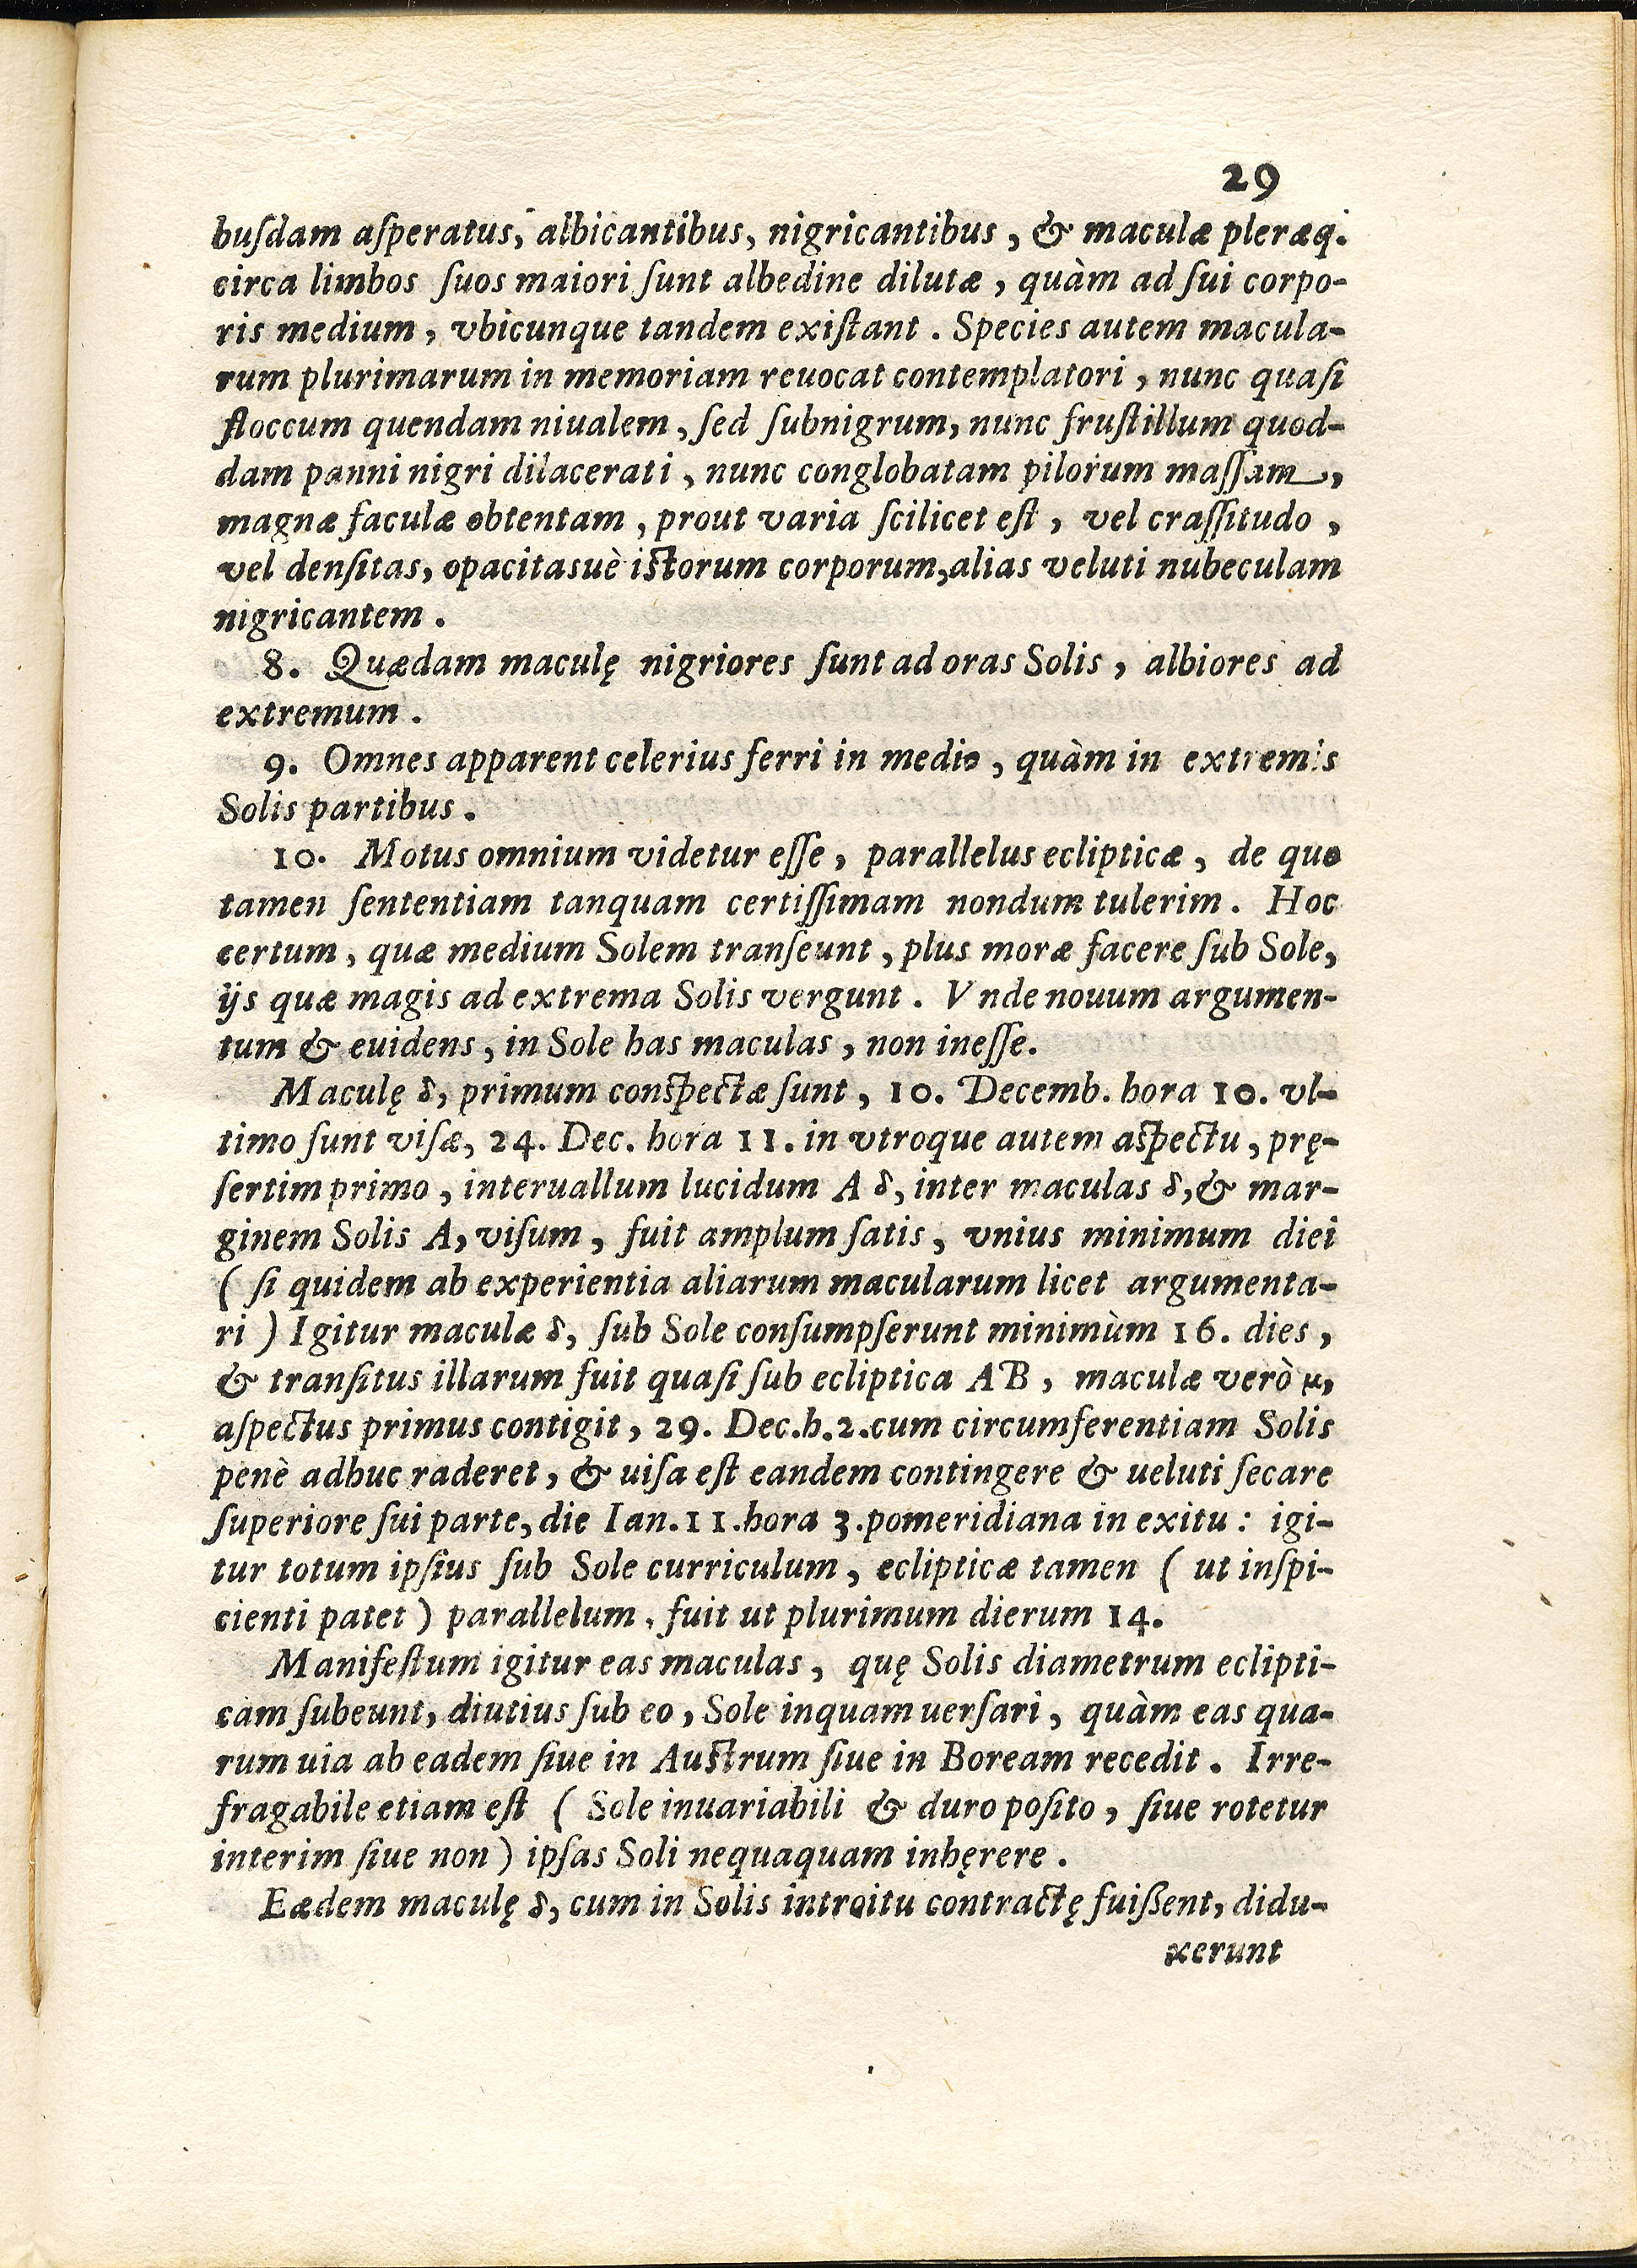 29
buſdam aſperatus, albicantibus, nigricantibus, & maculæ pleræq.
circa limbos ſuos maiori ſunt albedine dilutæ, quàm ad ſui corpo-
ris medium, vbicunque tandem exiſtant. Species autem macula-
rum plurimarum in memoriam reuocat contemplatori, nunc quaſi
floccum quendam niualem, ſed ſubnigrum, nunc fruſtillum quod-
dam panni nigri dilacerati, nunc conglobatam pilorum maſſam,
magnæ faculæ obtentam, prout varia ſcilicet eſt, vel craſſitudo,
vel denſitas, opacitasuè iſtorum corporum, alias veluti nubeculam
nigricantem.
8. Quædam maculę nigriores ſunt ad oras Solis, albiores ad
extremum.
9. Omnes apparent celerius ferri in medio, quàm in extremis
Solis partibus.
10. Motus omnium videtur eſſe, parallelus eclipticæ, de quo
tamen ſententiam tanquam certiſſimam nondum tulerim. Hoc
certum, quæ medium Solem tranſeunt, plus moræ facere ſub Sole,
ijs quæ magis ad extrema Solis vergunt. Vnde nouum argumen-
tum & euidens, in Sole has maculas, non ineſſe.
Maculę δ, primum conſpectæ ſunt, 10. Decemb. hora 10. vl-
timo ſunt viſæ, 24. Dec. hora 11. in vtroque autem aſpectu, prę-
ſertim primo, interuallum lucidum A δ, inter maculas δ, & mar-
ginem Solis A, viſum, fuit amplum ſatis, vnius minimum diei
( ſi quidem ab experientia aliarum macularum licet argumenta-
ri ) Igitur maculæ δ, ſub Sole conſumpſerunt minimùm 16. dies,
& tranſitus illarum fuit quaſi ſub ecliptica AB, maculæ verò μ,
aſpectus primus contigit, 29. Dec. h. 2. cum circumferentiam Solis
penè adhuc raderet, & uiſa eſt eandem contingere & ueluti ſecare
ſuperiore ſui parte, die Ian. 11. hora 3. pomeridiana in exitu: igi-
tur totum ipſius ſub Sole curriculum, eclipticæ tamen ( ut inſpi-
cienti patet ) parallelum, fuit ut plurimum dierum 14.
Manifeſtum igitur eas maculas, quę Solis diametrum eclipti-
cam ſubeunt, diutius ſub eo, Sole inquam uerſari, quàm eas qua-
rum uia ab eadem ſiue in Auſtrum ſiue in Boream recedit. Irre-
fragabile etiam eſt ( Sole inuariabili & duro poſito, ſiue rotetur
interim ſiue non ) ipſas Soli nequaquam inhęrere.
Eædem maculę δ, cum in Solis introitu contractę fuißent, didu-
xerunt